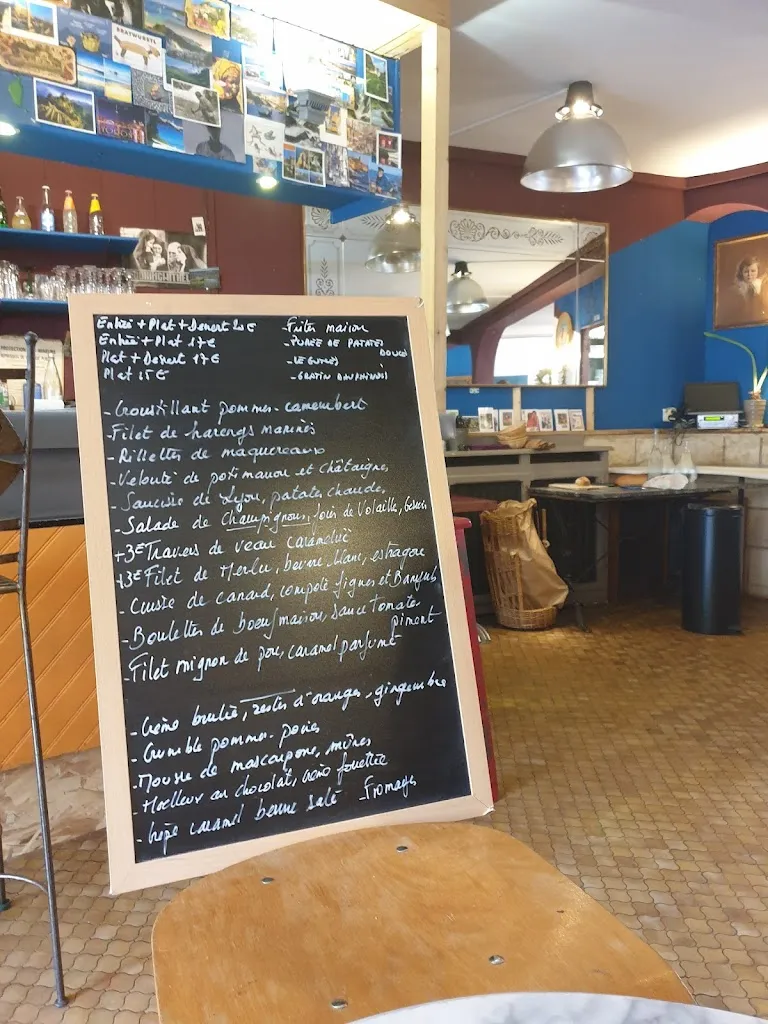 BRATWURSTL
Entrée + Plat + Dessert 20€
Entrée + Plat 17€
Plat + Dessert 17€
Plat 15€
- Frites maison
- PURÉE DE PATATES DOUCES
- LEGUMES
- GRATIN DAUPHINOIS
- Croustillant pommes - camembert
- Filet de harengs marinés
- Rillettes de maquereaux
- Velouté de potimarron et Châtaignes
- Saucisse de Lyon, patates chaudes
- Salade de Champignons, foies de Volaille,
+3€ Travers de veau caramélisé
+3€ Filet de Merlu, beurre blanc, estragon
- Cuisse de canard, compote figues et Banyuls
- Boulettes de boeuf maison, sauce tomate piment
- Filet mignon de porc, caramel parfumé
- Crème brulée, zestes d'oranges, gingembre
- Crumble pommes - poires
- Mousse de mascarpone, mûres
- Moelleux au chocolat, crème fouettée
- Crêpe caramel beurre salé - Fromages